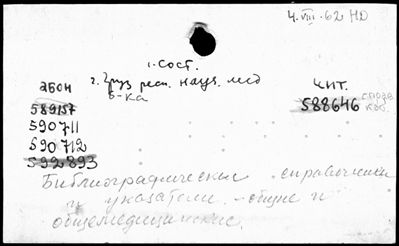 4.VIII.62 НО
1. Сост.
2. Груз. респ. науч. мед.
б-ка
абон
чит.
589157
588646
590711
590712
592893
Библиографические справочники
и указатели - общие и
общемедицинские.